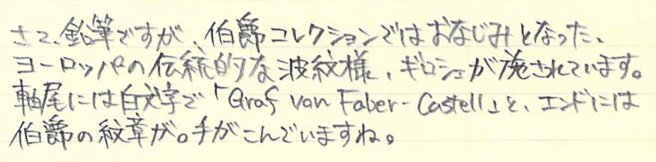 さて、鉛筆ですが、伯爵コレクションではおなじみとなった、
ヨーロッパの伝統的な波紋様、ギロシェが施されています。
軸尾には白文字で「Graf von Faber-Castell」と、エンドには
伯爵の紋章が。手がこんでいますね。